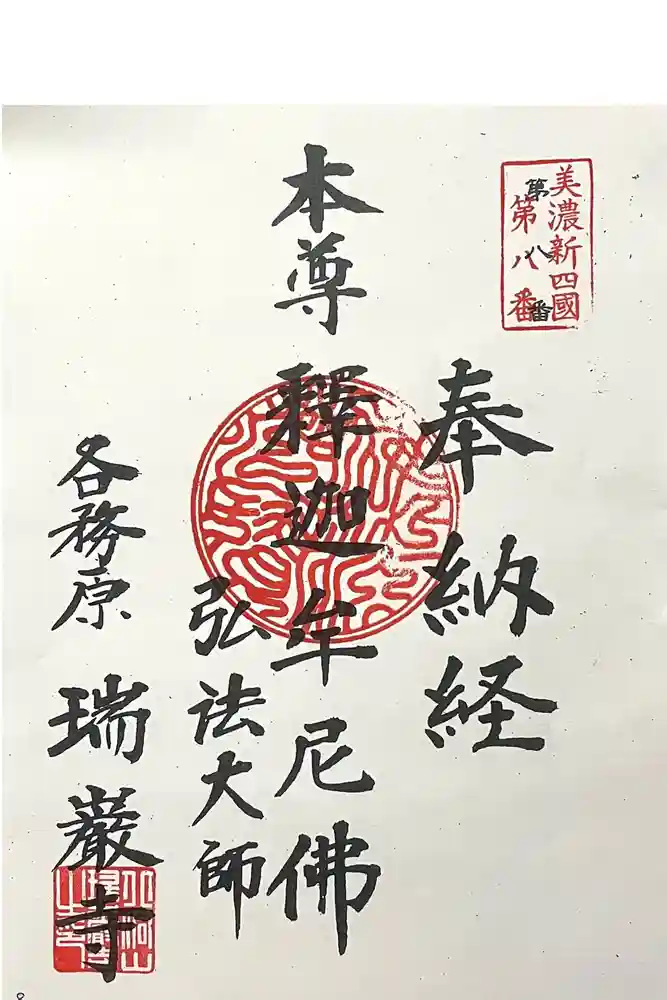 美濃新四國
第八番
第八番
奉納経
本尊 釋迦牟尼佛
弘法大師
各務原 瑞巌寺
8